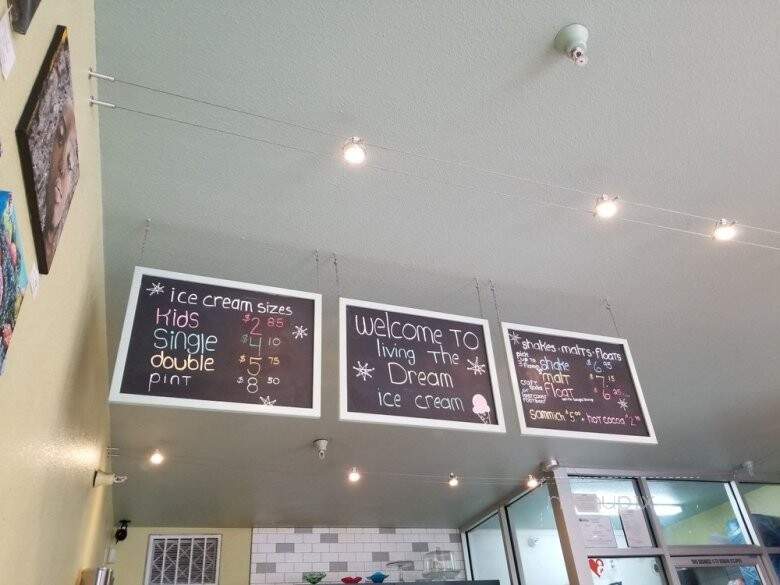 ice cream sizes
Kids $2 85
Single $4 10
double $5 75
PINT $8 50
Welcome To
living The
Dream
ice cream
shakes · malts · floats
pick
up to
shake $6 95
malt $7 15
craft
Float $6 25
Sammich $5 + Hot Cocoa $2